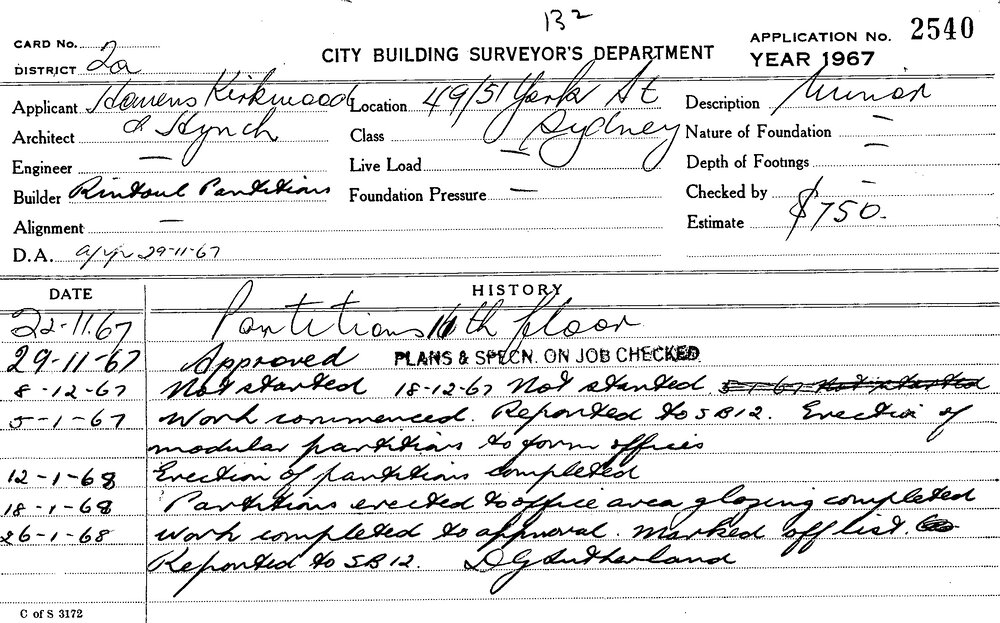 132
CARD No.
CITY BUILDING SURVEYOR'S DEPARTMENT
APPLICATION No. 2540
YEAR 1967
DISTRICT 2a
Applicant Hamens Kirkwood
Location 49/51 York St
Sydney
Description Minor
Architect & Hynch
Class
Nature of Foundation —
Engineer —
Live Load —
Depth of Footings —
Builder Rintoul Partitions
Foundation Pressure —
Checked by —
Alignment —
Estimate $750.
D.A. 29-11-67
DATE HISTORY
22-11.67 Partitions 11th floor
29-11-67 Approved PLANS & SPECN. ON JOB CHECKED
8-12-67 Not started 18-12-67 Not started. 5-1-67 Not started
5-1-67 Work commenced. Reported to SB12. Erection of
modular partitions to form offices
12-1-68 Erection of partitions completed
18-1-68 Partitions erected to office area glazing completed
26-1-68 Work completed to approval. Marked off list.
Reported to SB12. DG Sutherland
C of S 3172